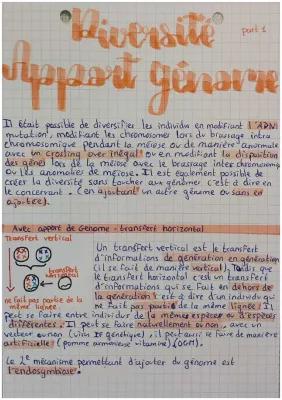 part 1
Diversité
Apport génome
Il était possible de diversifier les individus en modifiant l'ADN
mutation, modifiant les chromosomes lors du brassage intra
chromosomique pendant la méiose ou de manière anormale
avec un crosing over inégal ou en modifiant la disposition
des gènes lors de la méiose avec le brassage inter chromosomique
ou les anomalies de méiose. Il est également possible de
créer la diversité sans toucher aux génomes c'est à dire en
le concervant. (en ajoutant un autre génome ou sans en
ajoutée).
Avec apport de Génome - transfert horizontal
Transfert vertical
transfert horizontal
ne fait pas partie de la
même lignée
Un transfert vertical est le transfert
d'informations de génération en génération
(il se fait de manière vertical). Tandis que
le transfert horizontal c'est un transfert
d'informations qui se fait en dehors de
la génération c'est à dire d'un individu qui
ne fait pas partie de la même lignée. Il
peut se faire entre individus de la même espèces ou d'espèces
différentes. Il peut se faire naturellement ou non, avec un
vecteur ou non (virus génétique), il peut aussi se faire de manière
artificielle (pomme vitamine) (OGM).
Le 2e mécanisme permettant d'ajouter du génome est
l'endosymbiose.